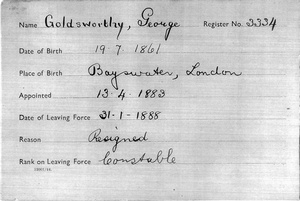 Name Goldsworthy, George Register No. 3334
Date of Birth 19 7 1861
Place of Birth Bayswater, London
Appointed 13·4·1883
Date of Leaving Force 31-1-1888
Reason Resigned
Rank on Leaving Force Constable